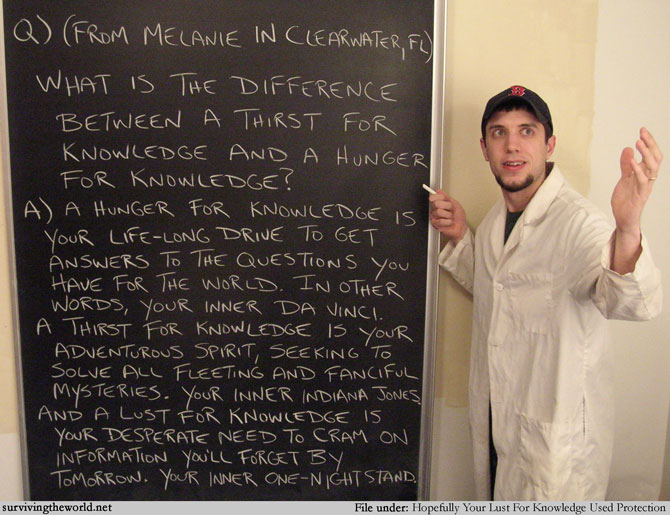 Q) (FROM MELANIE IN CLEARWATER, FL)
WHAT IS THE DIFFERENCE
BETWEEN A THIRST FOR
KNOWLEDGE AND A HUNGER
FOR KNOWLEDGE?
A) A HUNGER FOR KNOWLEDGE IS
YOUR LIFE-LONG DRIVE TO GET
ANSWERS TO THE QUESTIONS YOU
HAVE FOR THE WORLD. IN OTHER
WORDS, YOUR INNER DA VINCI.
A THIRST FOR KNOWLEDGE IS YOUR
ADVENTUROUS SPIRIT, SEEKING TO
SOLVE ALL FLEETING AND FANCIFUL
MYSTERIES. YOUR INNER INDIANA JONES
AND A LUST FOR KNOWLEDGE IS
YOUR DESPERATE NEED TO CRAM ON
INFORMATION YOU'LL FORGET BY
TOMORROW. YOUR INNER ONE-NIGHT STAND.
B
survivingtheworld.net
File under: Hopefully Your Lust For Knowledge Used Protection